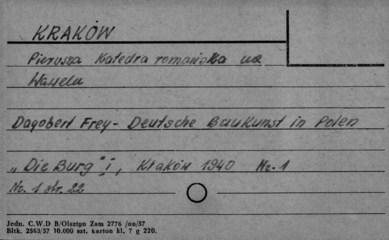 KRAKÓW
Pierwsza Katedra romańska na
Wawelu
Dagobert Frey - Deutsche Baukunst in Polen
„Die Burg" I, Kraków 1940 Nr. 1
Nr. 1 str. 22
Jedn. C.W.D B/Olsztyn Zam 2776 /oo/57
Bltk. 2563/57 10.000 szt. karton kl. 7 g 220.